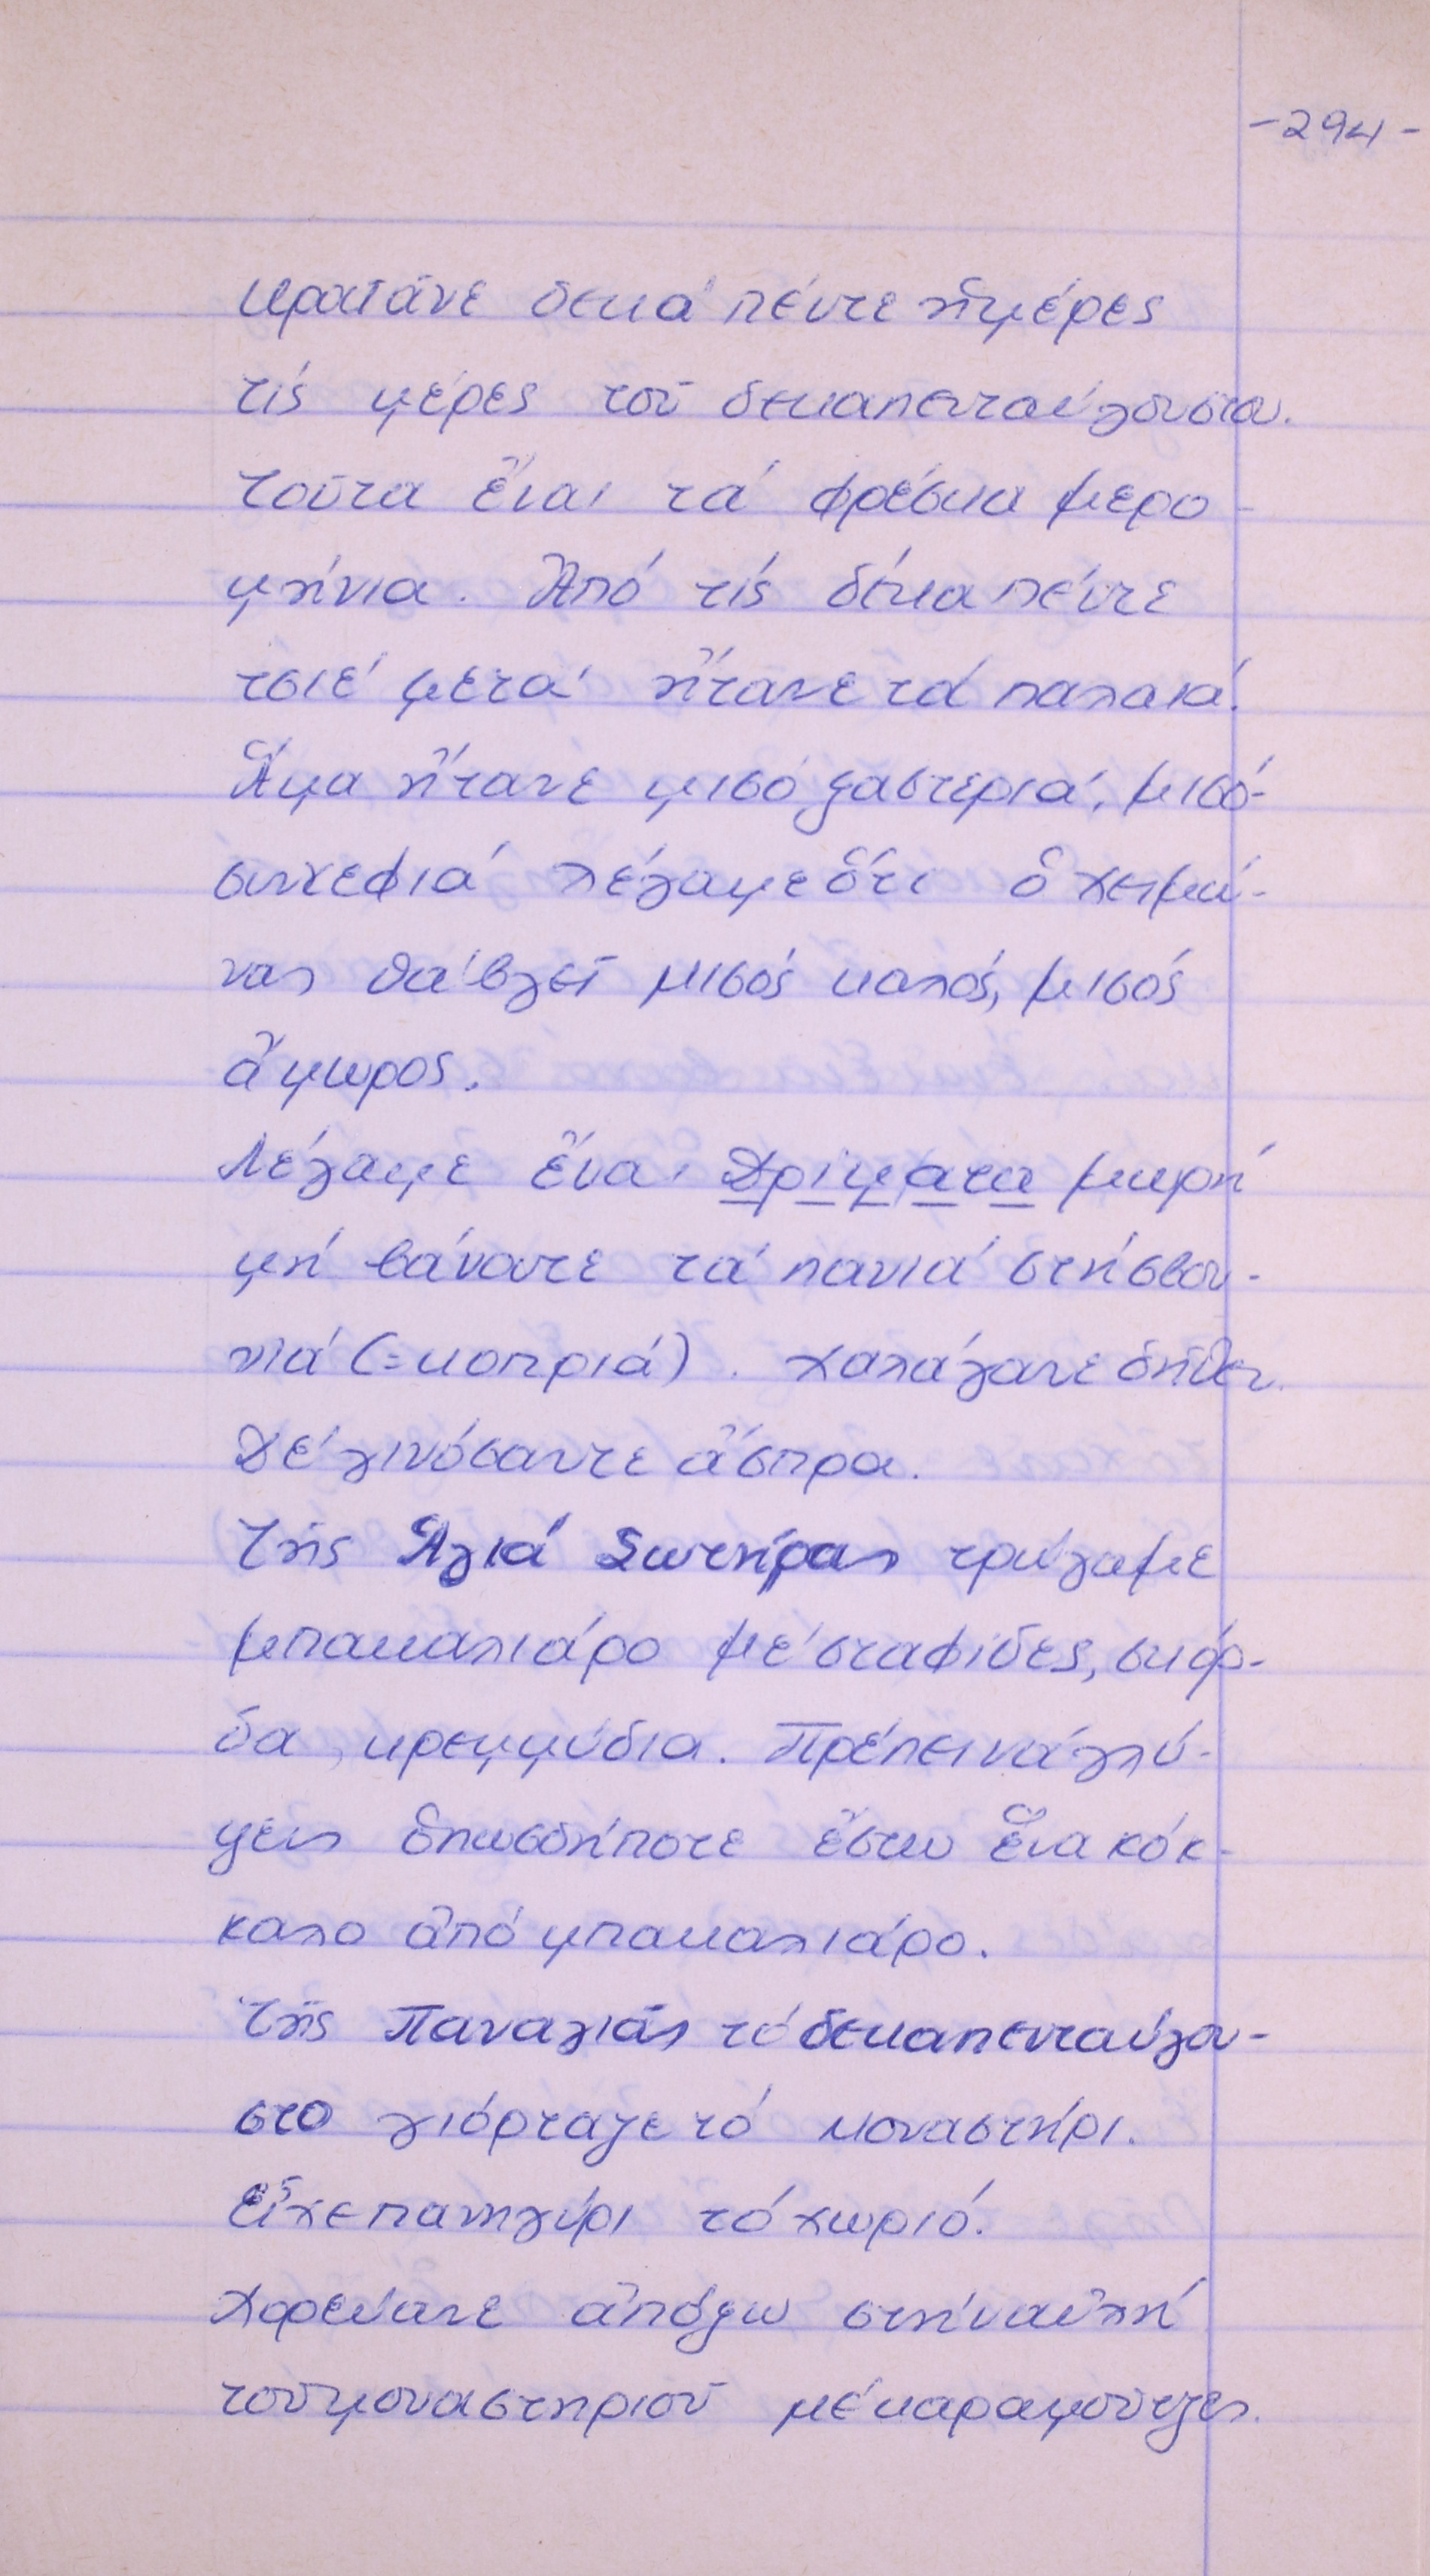 -294-
κρατᾶνε δεκά πέντε ἡμέρες
τίς μέρες τοῦ δεκαπενταύγουστου.
τοῦτα ἔναι τά φρέσκα μερο-
μήνια. Ἀπό τίς δέκα πέντε
τσιέ μετά ἤτανε τά παλαιά.
Ἅμα ἤτανε μισό ξαστεριά, μισό-
συνεφιά λέγαμε ὅτι ὁ χειμώ-
νας θά βγεῖ μισός καλός, μισός
ἄμωρος.
Λέγαμε ἔναι Δρίματα μωρή
μή βάνουτε τά πανιά στή σβου-
νιά (=κοπριά). Χαλάγανε δῆθεν.
Δέ γινόσαντε ἄσπρα.
Τῆς Ἁγιά Σωτήρας τρώγαμε
μπακαλιάρο μέ σταφίδες, σκόρ-
δα, κρεμμύδια. Πρέπει νά γλύ-
ψεις ὁπωσδήποτε ἔστω ἕνα κόκ-
καλο ἀπό μπακαλιάρο.
Τῆς Παναγιᾶς τό δεκαπενταύγου-
στο γιόρταζε τό μοναστήρι.
Εἶχε πανηγύρι τό χωριό.
Χορεύανε ἀπόξω στήν αὐλή
τοῦ μοναστηριοῦ μέ καραμοῦτζες.